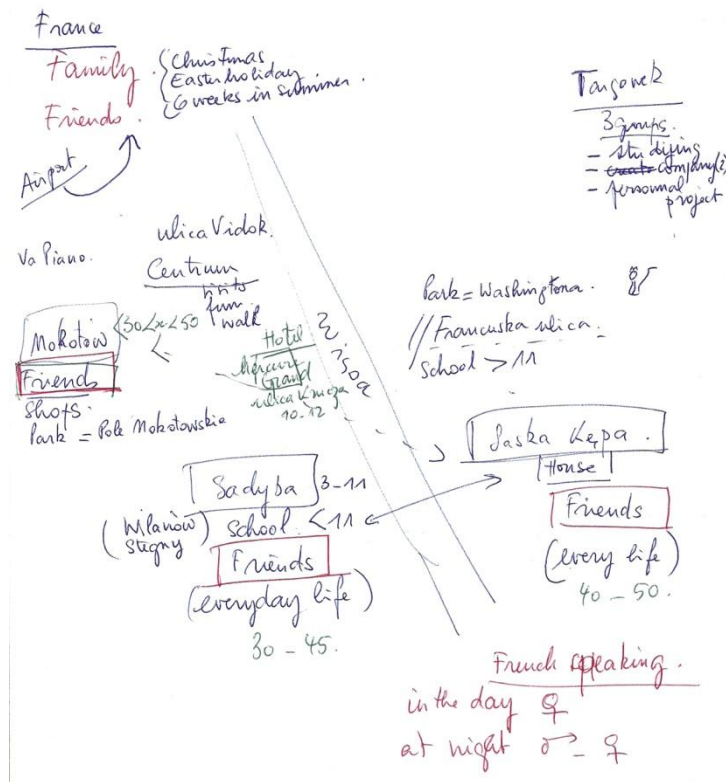 France
Family
Friends
Christmas
Easter holiday
6 weeks in summer.
Airport
Targowek
3 groups.
- studying
- company(?)
- personnal
project
Va Piano.
ulica Vidok.
Centrum
fun
walk
Mokotow
30<x<50
<
Friends
Shops.
Park = Pole Mokotowskie
Hotel
Mercure
Grand
ulica Krucza
10-12
Park = Washingtona.
// Francuska ulica.
School > 11
Saska Kępa.
House
Friends
(every life)
40 - 50.
Sadyba 3-11
(Wilanów
Stegny)
school. <11
Friends
(everyday life)
30 - 45.
French speaking.
in the day ♀
at night ♂ - ♀